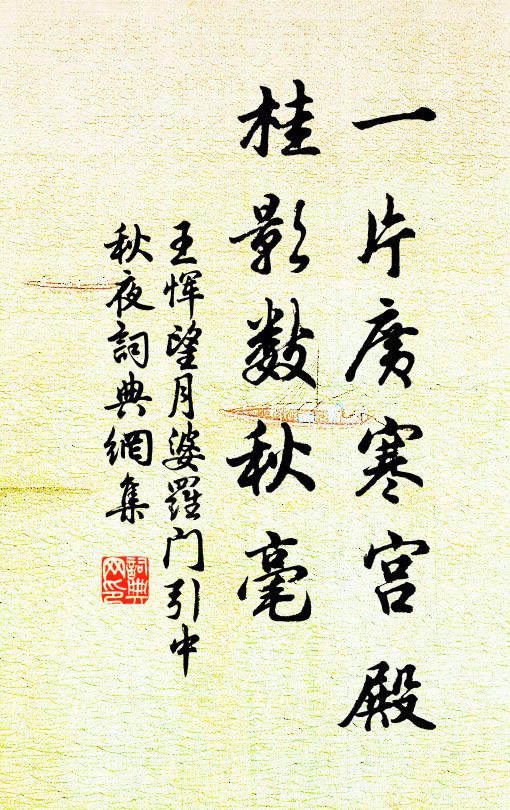 一片广寒宫殿
桂影数秋毫
王恽望月婆羅门引中
秋夜詞典網集
詞典网印